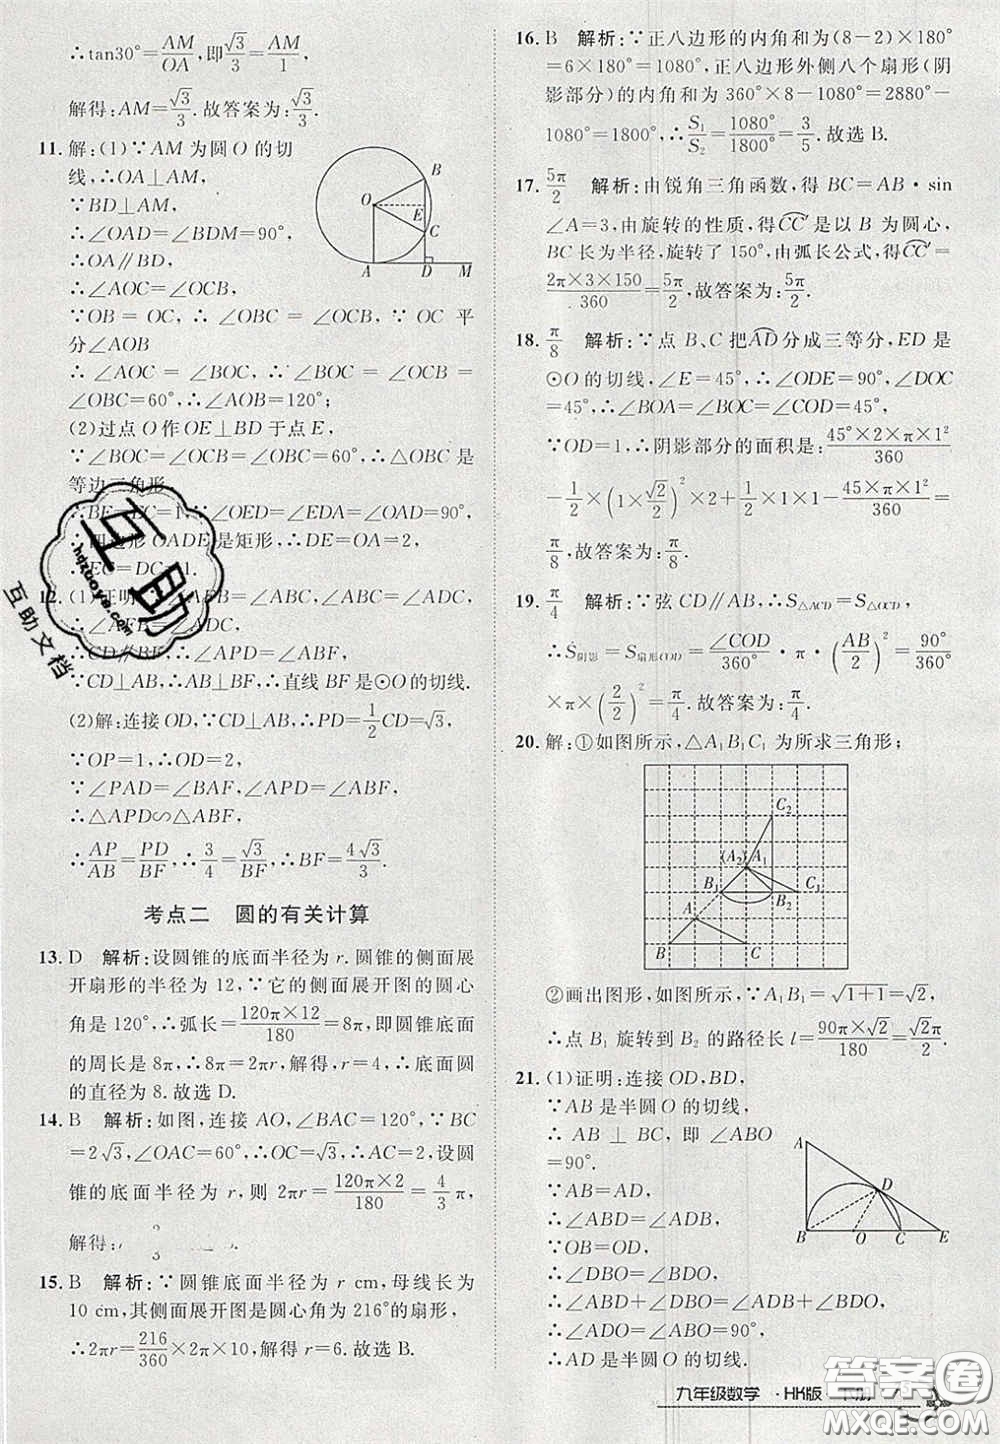 ∴tan30°=AM/OA=√3/3,即√3/3=AM/1,
解得:AM=√3/3.故答案为:√3/3.
11. 解:(1)∵AM为圆O的切
线,∴OA⊥AM,
∵BD⊥AM,
∴∠OAD=∠BDM=90°,
∴OA∥BD,
∴∠AOC=∠OCB,
∵OB=OC,∴∠OBC=∠OCB,∵OC平
分∠AOB
∴∠AOC=∠BOC,∴∠BOC=∠OCB=
∠OBC=60°,∴∠AOB=120°;
(2)过点O作OE⊥BD于点E,
∵∠BOC=∠OCB=∠OBC=60°,∴△OBC是
等边三角形,
∴BE=EC=1,∵∠OED=∠EDA=∠OAD=90°,
∴四边形OADE是矩形,∴DE=OA=2,
∴EC=DC=1.
12. (1)证明:∵∠AFB=∠ABC=∠ADC,
∴∠AFB=∠ADC,
∴CD∥BF,∴∠APD=∠ABF,
∵CD⊥AB,∴AB⊥BF,∴直线BF是⊙O的切线.
(2)解:连接OD,∵CD⊥AB,∴PD=1/2CD=√3,
∵OP=1,∴OD=2,
∵∠PAD=∠BAF,∠APD=∠ABF,
∴△APD∽△ABF,
∴AP/AB=PD/BF,∴3/4=√3/BF,∴BF=4√3/3.
考点二 圆的有关计算
13. D 解析:设圆锥的底面半径为r.圆锥的侧面展
开扇形的半径为12,∵它的侧面展开图的圆心
角是120°,∴弧长=120π×12/180=8π,即圆锥底面
的周长是8π,∴8π=2πr,解得,r=4,∴底面圆
的直径为8.故选D.
14. B 解析:如图,连接AO,∠BAC=120°,∵BC
=2√3,∠OAC=60°,∴OC=√3,∴AC=2,设圆
锥的底面半径为r,则2πr=120π×2/180=4/3π,
解得:
15. B 解析:∵圆锥底面半径为r cm,母线长为
10 cm,其侧面展开图是圆心角为216°的扇形,
∴2πr=216/360×2π×10,解得r=6.故选B.
16. B 解析:∵正八边形的内角和为(8-2)×180°
=6×180°=1080°,正八边形外侧八个扇形(阴
影部分)的内角和为360°×8-1080°=2880°-
1080°=1800°,∴S₁/S₂=1080°/1800°=3/5.故选B.
17. 5π/2 解析:由锐角三角函数,得BC=AB·sin
∠A=3,由旋转的性质,得CC′是以B为圆心,
BC长为半径,旋转了150°,由弧长公式,得CC′=
2π×3×150/360=5π/2,故答案为:5π/2.
18. π/8 解析:∵点B、C把AD分成三等分,ED是
⊙O的切线,∠E=45°,∴∠ODE=90°,∠DOC
=45°,∴∠BOA=∠BOC=∠COD=45°,
∵OD=1,∴阴影部分的面积是:45°×2×π×1²/360
-1/2×(1×√2/2)²×2+1/2×1×1-45×π×1²/360=
π/8,故答案为:π/8.
19. π/4 解析:∵弦CD∥AB,∴S△ACD=S△OCD,
∴S阴影=S扇形COD=∠COD/360°·π·(AB/2)²=90°/360°
×π×(2/2)²=π/4.故答案为:π/4.
20. 解:①如图所示,△A₁B₁C₁为所求三角形;
②画出图形,如图所示,∵A₁B₁=√(1+1)=√2,
∴点B₁旋转到B₂的路径长l=90π×√2/180=√2π/2.
21. (1)证明:连接OD,BD,
∵AB是半圆O的切线,
∴AB⊥BC,即∠ABO
=90°.
∵AB=AD,
∴∠ABD=∠ADB,
∵OB=OD,
∴∠DBO=∠BDO,
∴∠ABD+∠DBO=∠ADB+∠BDO,
∴∠ADO=∠ABO=90°,
∴AD是半圆O的切线.
O B E C A D M
C₂ (A₂) A₁ B₁ B₂ A B C
A D B O C E
互助
hdzuoye.com
互助文档
九年级数学·HK版·下册
答案圈
MXQE.COM